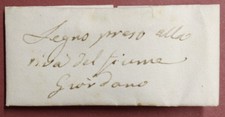 Legno preso alla
riva del fiume
Giordano